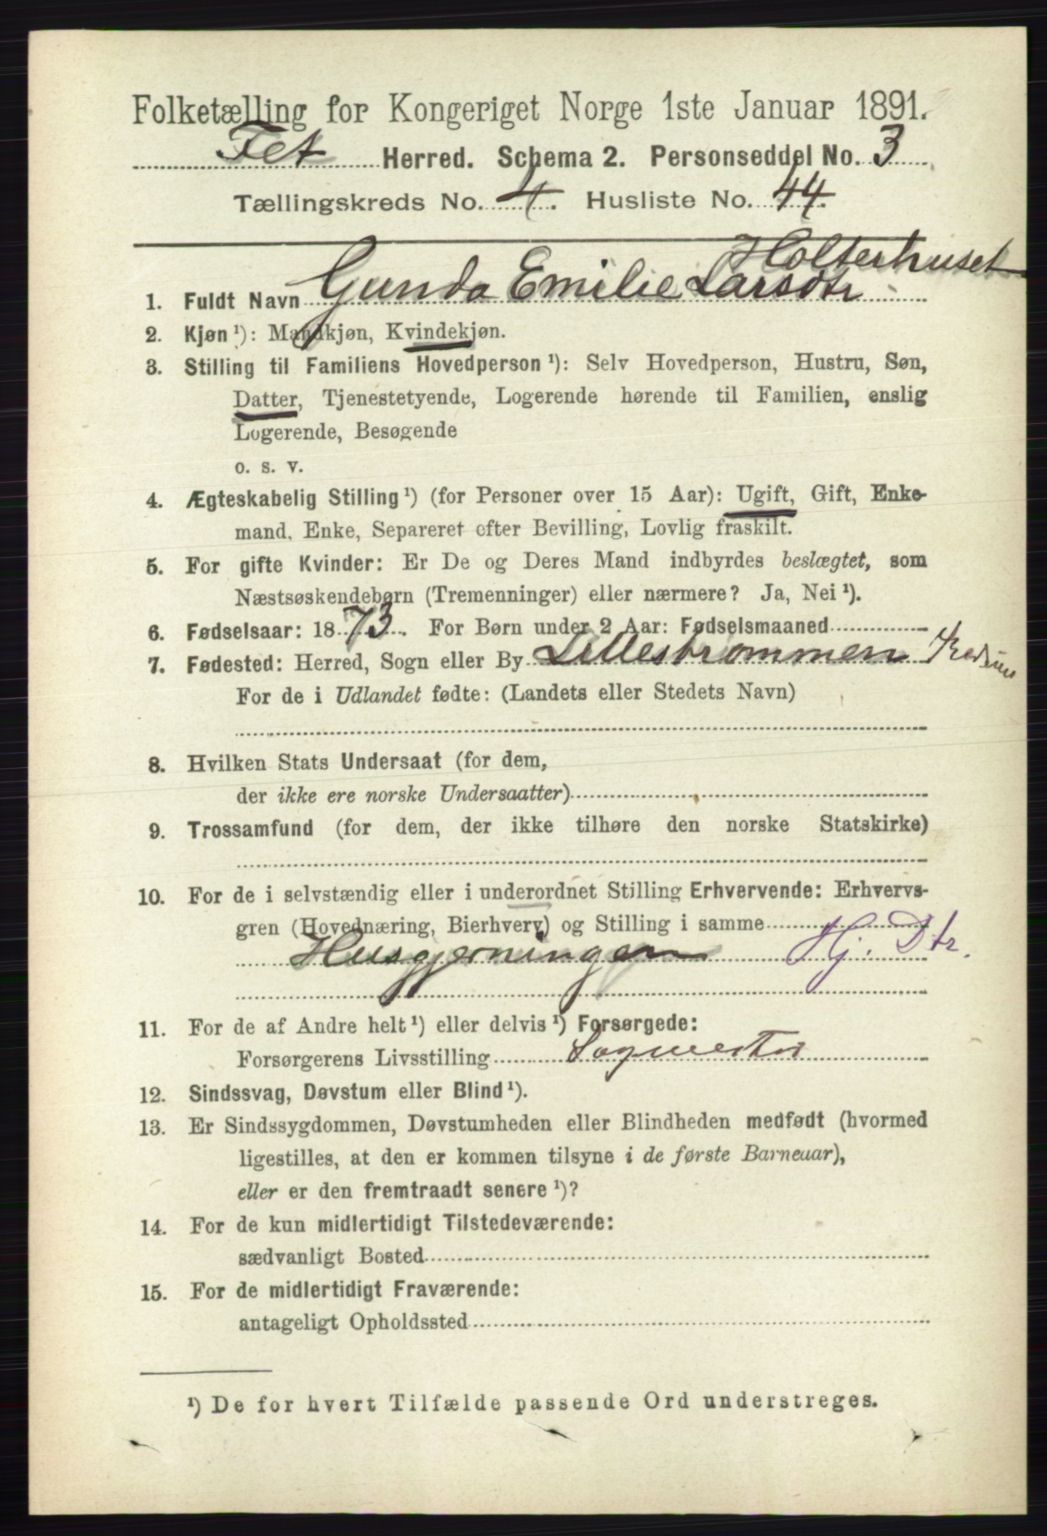 Folketælling for Kongeriget Norge 1ste Januar 1891.
Fet Herred. Schema 2. Personseddel No. 3
Tællingskreds No. 4. Husliste No. 44.
Holterhuset
1. Fuldt Navn Gunda Emilie Larsdtr
2. Kjøn ¹): Mandkjøn, Kvindekjøn.
3. Stilling til Familiens Hovedperson ¹): Selv Hovedperson, Hustru, Søn,
Datter, Tjenestetyende, Logerende hørende til Familien, enslig
Logerende, Besøgende
o. s. v.
4. Ægteskabelig Stilling ¹) (for Personer over 15 Aar): Ugift, Gift, Enke-
mand, Enke, Separeret efter Bevilling, Lovlig fraskilt.
5. For gifte Kvinder: Er De og Deres Mand indbyrdes beslægtet, som
Næstsøskendebørn (Tremenninger) eller nærmere? Ja, Nei ¹).
6. Fødselsaar: 1873. For Børn under 2 Aar: Fødselsmaaned
7. Fødested: Herred, Sogn eller By Lillestrømmen
For de i Udlandet fødte: (Landets eller Stedets Navn)
8. Hvilken Stats Undersaat (for dem,
der ikke ere norske Undersaatter)
9. Trossamfund (for dem, der ikke tilhøre den norske Statskirke)
10. For de i selvstændig eller i underordnet Stilling Erhvervende: Erhvervs-
gren (Hovednæring, Bierhverv) og Stilling i samme
Husgjerningen Hj. Dtr.
11. For de af Andre helt ¹) eller delvis ¹) Forsørgede:
Forsørgerens Livsstilling
12. Sindssvag, Døvstum eller Blind ¹).
13. Er Sindssygdommen, Døvstumheden eller Blindheden medfødt (hvormed
ligestilles, at den er kommen tilsyne i de første Barneaar),
eller er den fremtraadt senere ¹)?
14. For de kun midlertidigt Tilstedeværende:
sædvanligt Bosted
15. For de midlertidigt Fraværende:
antageligt Opholdssted
¹) De for hvert Tilfælde passende Ord understreges.